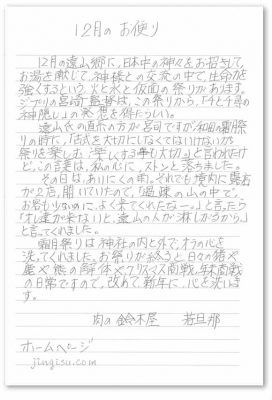 12月の お便り
12月の遠山郷に、日本中の神々をお招きして、
お湯を献じて、神様との交流の中で、生命力を
強くするという、火と水と仮面の祭りがあります。
ジブリの宮崎監督は、この祭りから、「千と千尋の
神隠し」の発想を得たらしい。
遠山氏の直系の方が宮司ですが、和田の霜月祭
りの時に、「古式を大切にしなくてはいけないが、
祭りを楽しむ、楽しくする事も大切」と言われたけ
ど、この言葉は、私の心に、ストンと落ちました。
その日は、あいにくの雨。それでも境内に露店
が2店、開いていたので、「過疎の山の中で、
お客もいないのに、よく来てくれたなー。」と言ったら
「オレ達が来ないと、遠山の人が淋しがるから。」
と言ってくれました。
霜月祭りは神社の内と外で、オラの心を
洗ってくれました。お祭りが終ると日々の猪×
鹿×熊の解体×クリスマス商戦、年末商戦
の日常ですので、改めて、新年に、心を洗いま
す。
肉の鈴木屋 若旦那
ホームページ
jingisu.com